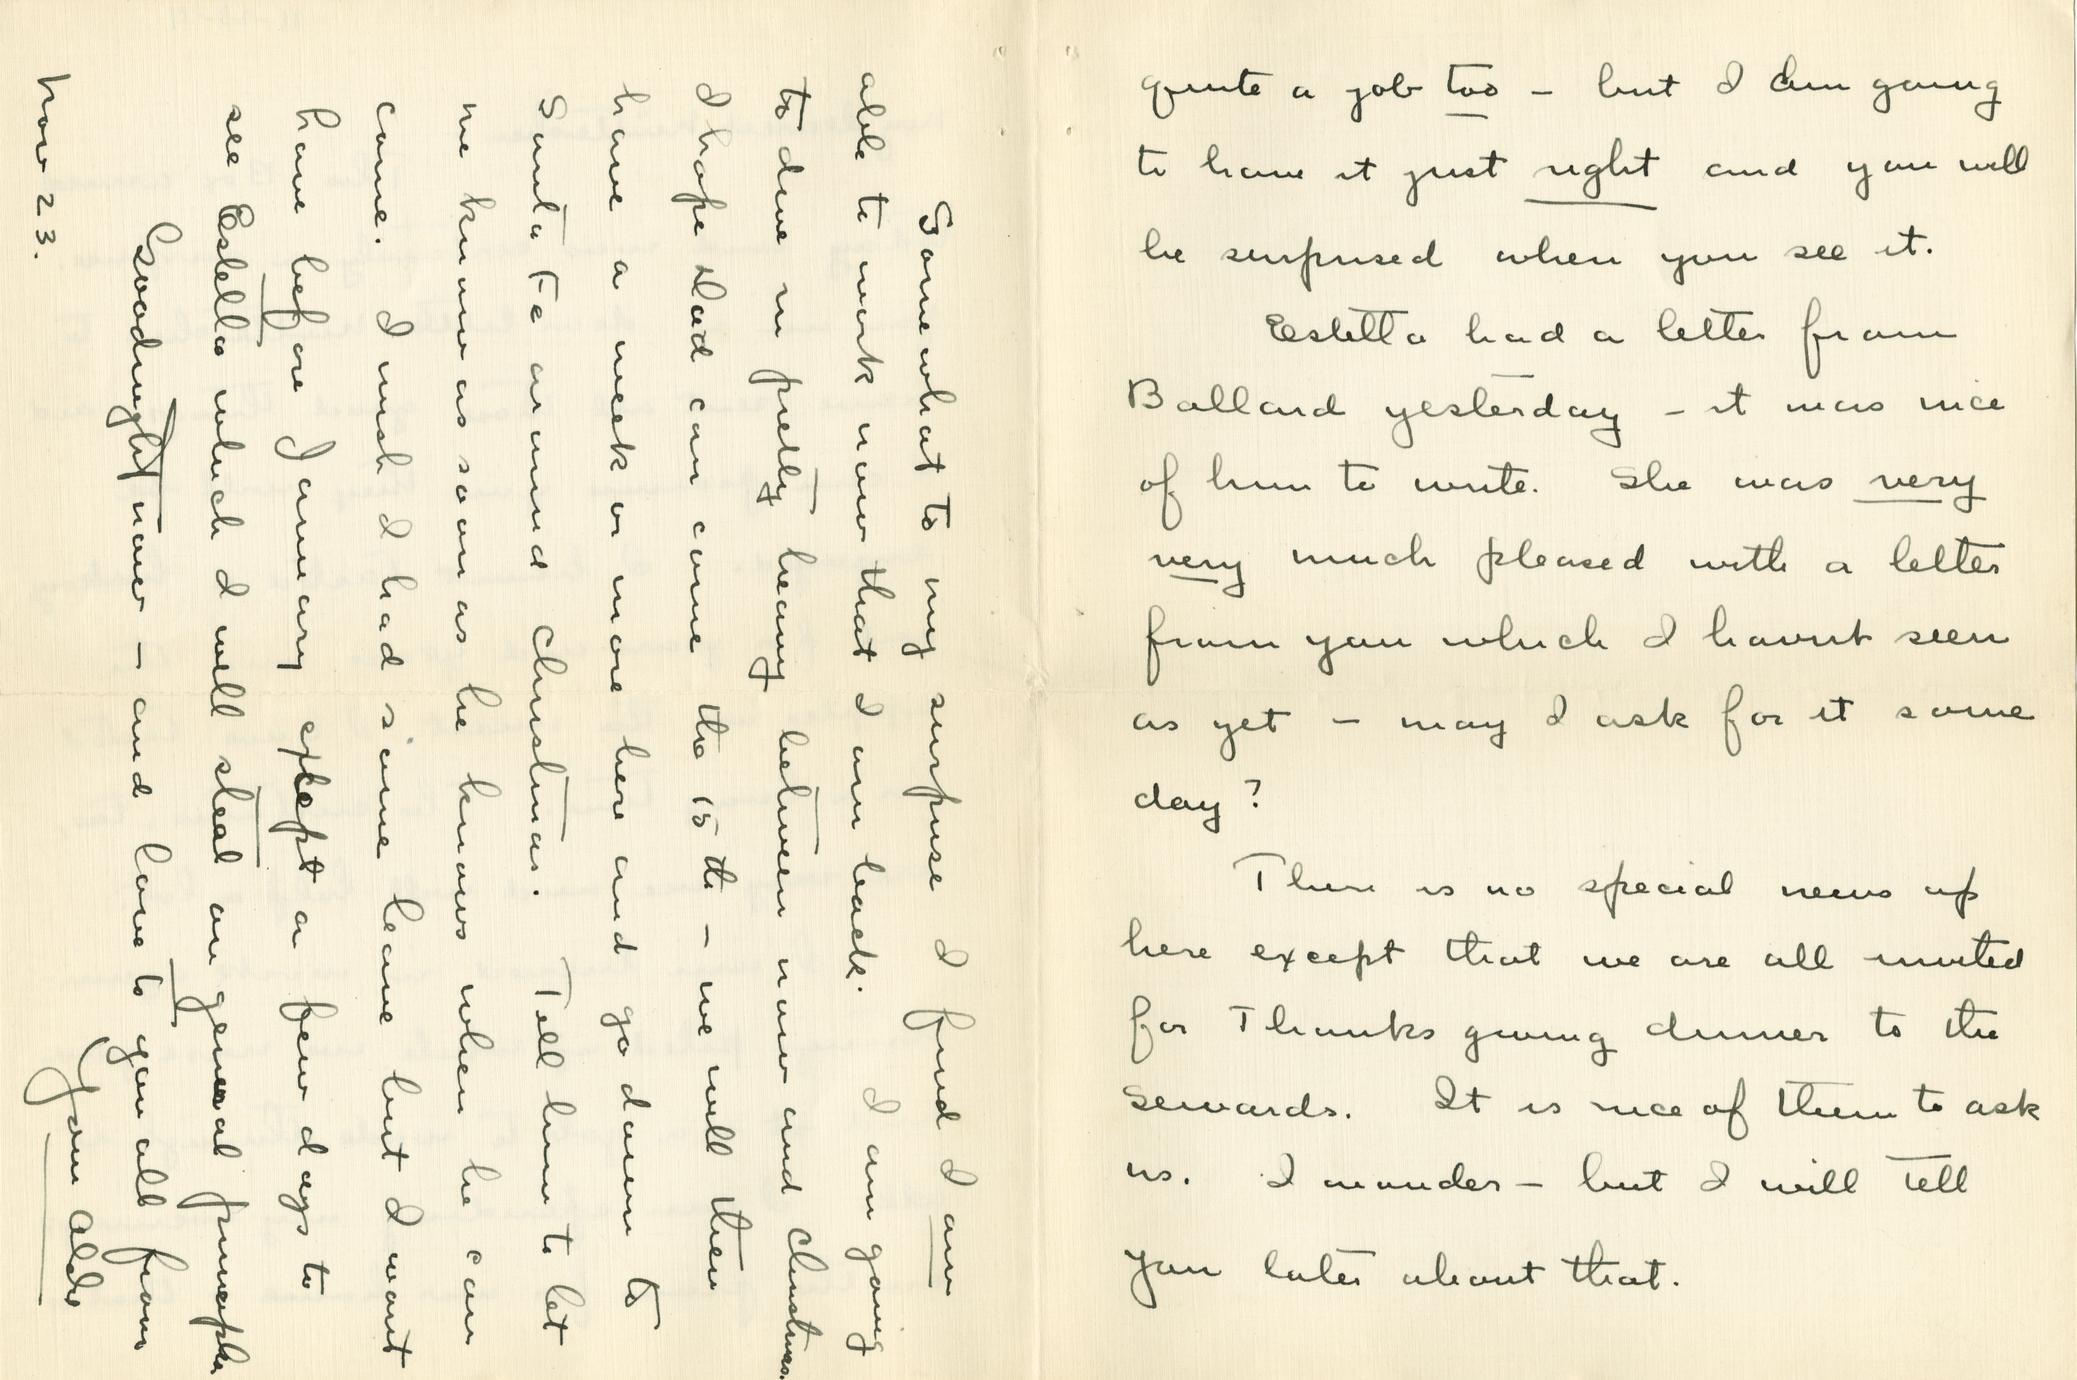 quite a job too – but I am going
to have it just right and you will
be surprised when you see it.
Estella had a letter from
Ballard yesterday – it was nice
of him to write. She was very
very much pleased with a letter
from you which I havnt seen
as yet – may I ask for it some
day?
There is no special news up
here except that we are all invited
for Thanksgiving dinner to the
Sewards. It is nice of them to ask
us. I wonder – but I will tell
you later about that.
Somewhat to my surprise I find I am
able to work now that I am back. I am going
to dive in pretty heavy between now and Christmas.
I hope Dad can come the 15th – we will then
have a week or more here and go down to
Santa Fe around Christmas. Tell him to let
me know as soon as he knows when he can
come. I wish I had some leave but I wont
have before January except a few days to
see Estella which I will steal on general principles
Goodnight now – and love to you all from
Your Aldo
Nov 23.